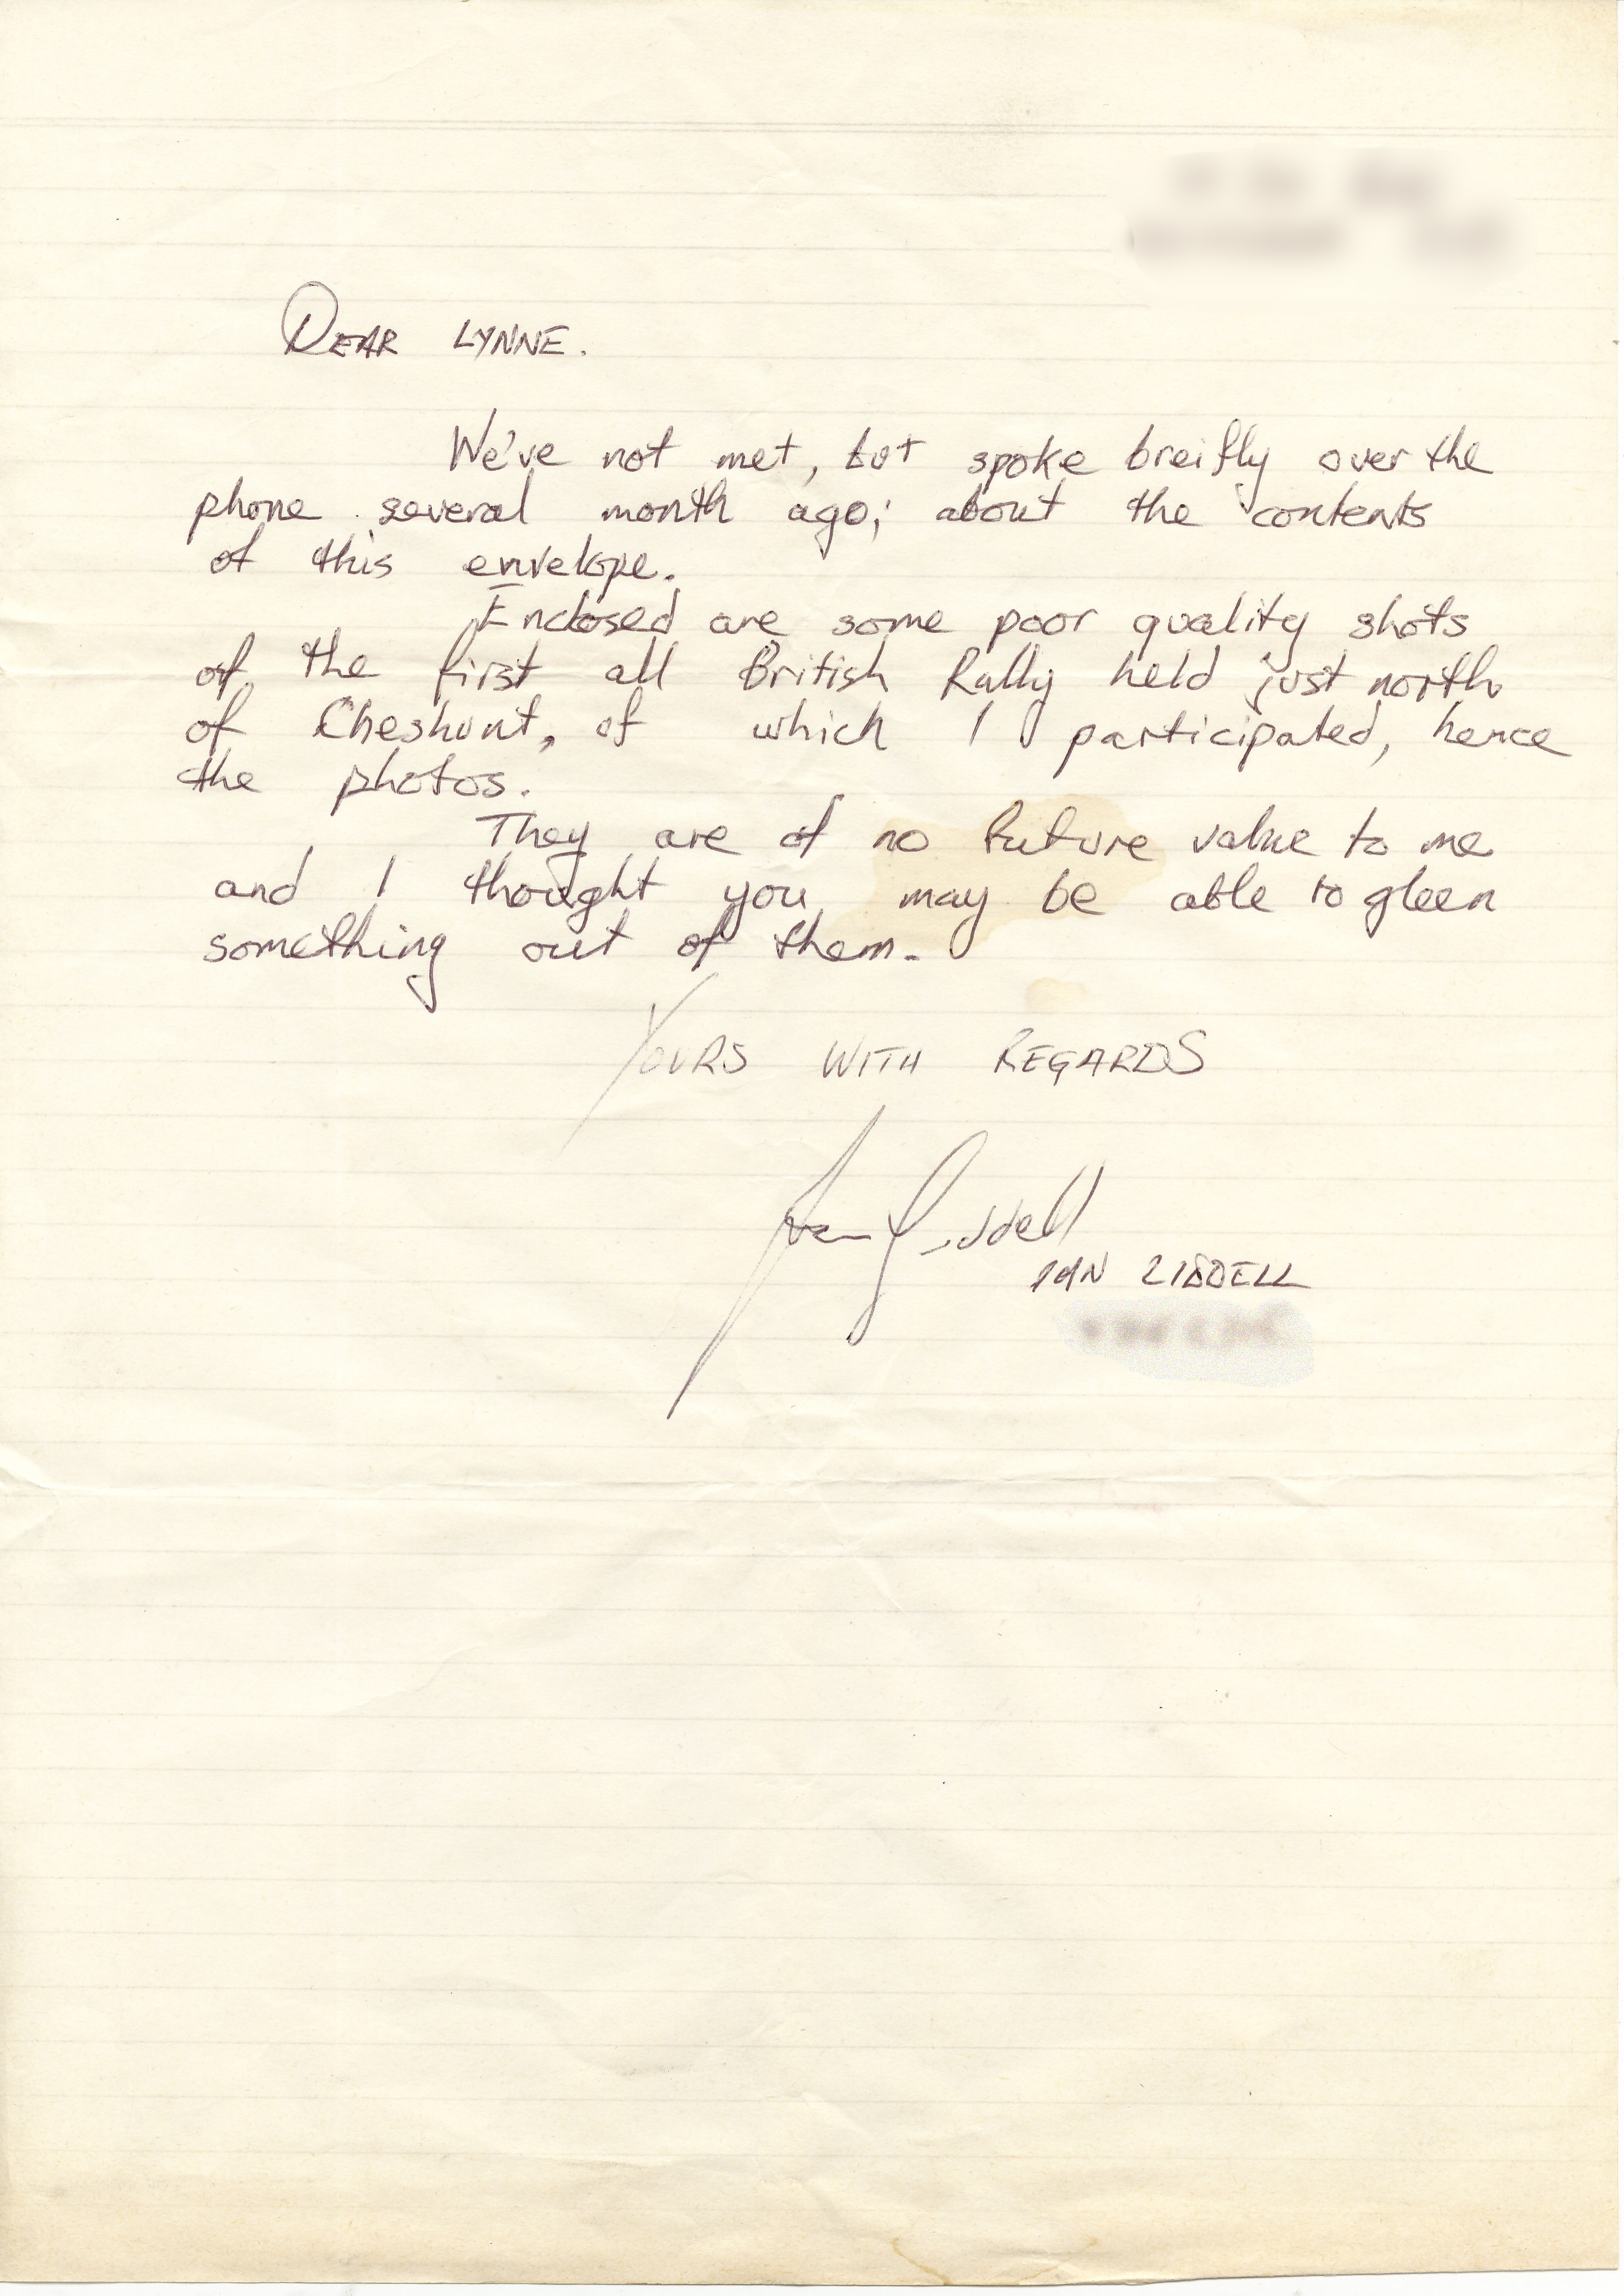 DEAR LYNNE.
We've not met, but spoke breifly over the
phone several month ago; about the contents
of this envelope.
Enclosed are some poor quality shots
of the first all British Rally held just north
of Cheshunt, of which I participated, hence
the photos.
They are of no future value to me
and I thought you may be able to gleen
something out of them.
YOURS WITH REGARDS
Ian Liddell
IAN LIDDELL